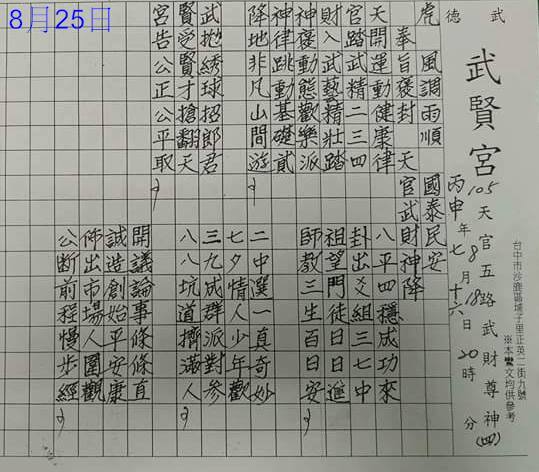 8月25日
武德
武賢宮
天官五路武財尊神(四)
台中市沙鹿區埔子里正英二街九號
※本鸞文均供參考
105 年 8 月 18 日 20 時 分
丙申 七 十六
虎 風調雨順 國泰民安
奉旨褒封 天官武財神降
天開運動健康律
官踏武精二三四
財入武藝精壯踏
神褒動態歡樂派
神律跳動基礎貳
降地非凡山間遊
武拋綉球招郎君
賢受賢才搶翻天
宮告公正公平取
八平四穩成功來
卦出爻組三七中
祖望門徒日日進
師教三生百日安
二中選一真奇妙
七夕情人少年歡
三九成群派對參
八八坑道擠滿人
開議論事條條直
誠造創始平安康
佈出市場人圍觀
公斷前程慢步經